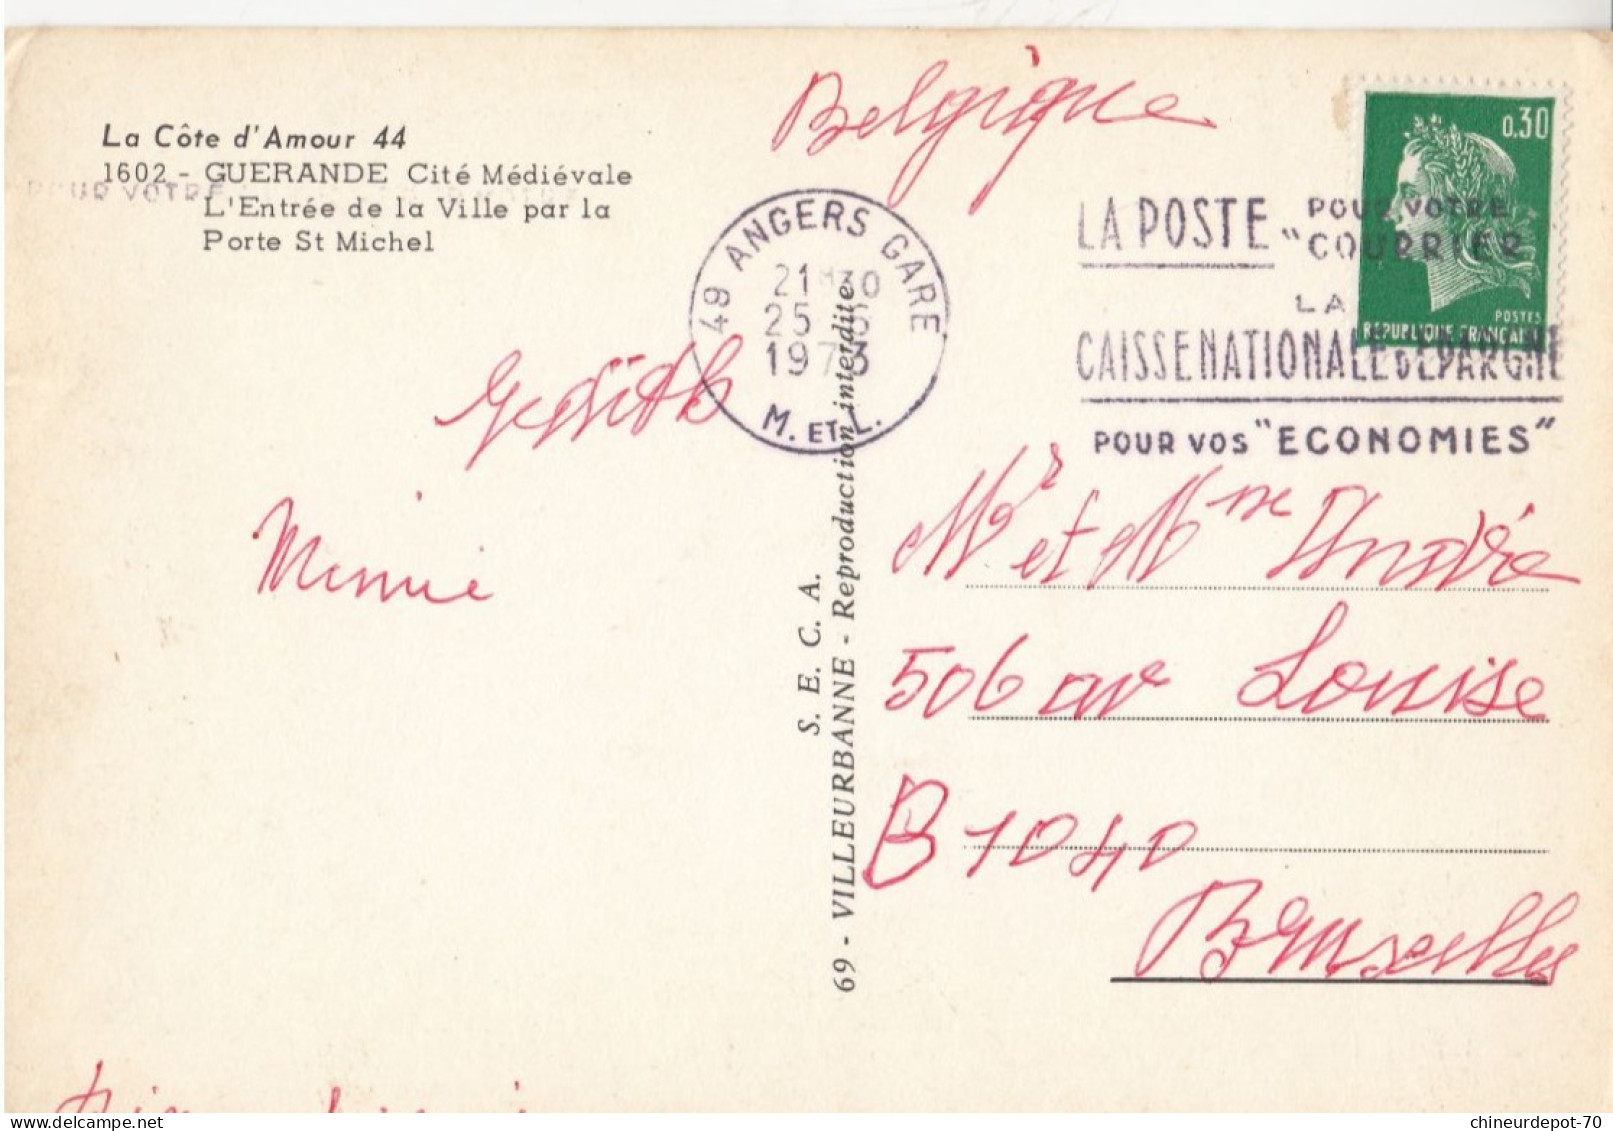 La Côte d'Amour 44
1602 - GUERANDE Cité Médiévale
L'Entrée de la Ville par la
Porte St Michel
POUR VOTRE
Belgique
0,30
POSTES
REPUBLIQUE FRANCAISE
49 ANGERS GARE
21 H 30
25 - 6
1973
M. ET L.
LA POSTE POUR VOTRE
"COURRIER
LA
CAISSE NATIONALE D'EPARGNE
POUR VOS "ECONOMIES"
Minnie
S. E. C. A.
69 - VILLEURBANNE - Reproduction interdite
Mr et Mme André
506 av Louise
B 1040
Bruxelles
chineurdepot-70